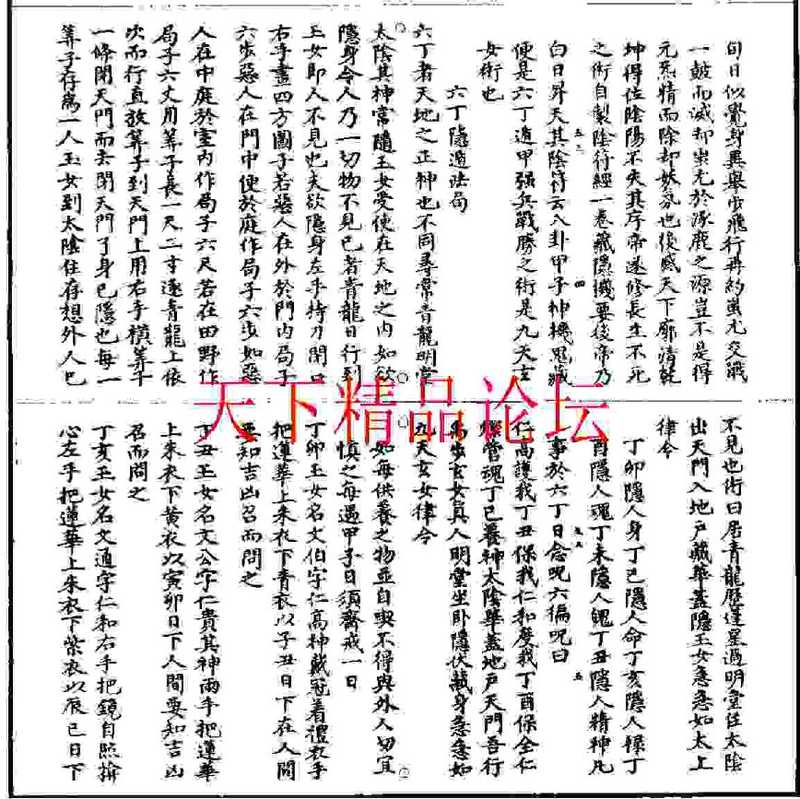 旬日似覺身異舉步飛行再約蚩尤交戰
一皷而滅却蚩尤於涿鹿之源豈不是得
元炁精而除却妖氛也後感天下廓清乾
坤得位陰陽不失其序帝遂修長生不死
之術自製陰符經一卷藏隱機要後帝乃
白日昇天其陰符云八卦甲子神機鬼藏
便是六丁遁甲强兵戰勝之術是九天玄
女術也
六丁隱遁法局
六丁者天地之正神也不同尋常青龍明堂
太陰其神常隨玉女受使在天地之内如欲
隱身令人乃一切物不見已者青龍日行到
玉女即人不見也夫欲隱身左手持刀閉口
右手畫四方圖子若惡人在外於門内局子
六步惡人在門中便於庭作局子六步如惡
人在中庭於室内作局子六尺若在田野作
局子六丈用筭子長一尺二寸逐青龍上依
次而行直放筭子到天門上用右手橫筭子
一條閉天門而去閉天門了身已隱也每一
筭子存爲一人玉女到太陰住存想外人已
不見也術曰居青龍歷逢星過明堂住太陰
出天門入地戶藏華蓋隱玉女急急如太上
律令
丁卯隱人身丁已隱人命丁亥隱人祿丁
酉隱人魂丁未隱人魄丁丑隱人精神凡
事於六丁日念呪六徧呪曰
仁高護我丁丑保我仁和度我丁酉保全仁
管魂丁巳養神太陰華蓋地戶天門吾行
禹步玄女真人明堂坐卧隱伏藏身急急如
九天玄女律令
如每供養之物並自喫不得與外人切宜
慎之每遇甲子日須齋戒一日
丁卯玉女名文伯字仁高神戴冠着禮衣手
把蓮華上朱衣下青衣以子丑日下在人間
要知吉凶召而問之
丁丑玉女名文公字仁貴其神兩手把蓮華
上朱衣下黄衣以寅卯日下人間要知吉凶
召而問之
丁亥玉女名文通字仁和右手把鏡自照揄
心左手把蓮華上朱衣下紫衣以辰巳日下
天下精品论坛